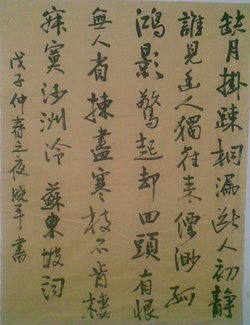 缺月掛疎桐漏断人初静
誰見幽人獨往来縹渺孤
鴻影驚起却回頭有恨
無人省揀盡寒枝不肯棲
寂寞沙洲冷 蘇東坡詞
戊子仲春之夜 晓平書